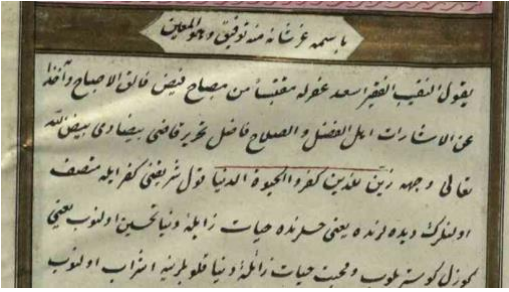 باسمه عز شانه منه توفيق وهو المعين
يقول النقيب الفقير اسعد غفر له مقتبسا من مصباح فيض فالق الاصباح وآخذا
عن الاشارات اهل الفضل و الصلاح فاضل تحرير قاضى بيضاوى بيض الله
تعالى وجهه زين للذين كفروا الحيوة الدنيا قول شريفنى كفر ايله متصف
اولنلرك ديده لرنده يعنى حسلرنده حيات زايلهٔ دنيا تحسين اولنوب يعنى
كوزل كوستريلوب ومحبت حيات زائلهٔ دنيا قلوبلرينه اشراب اولنوب